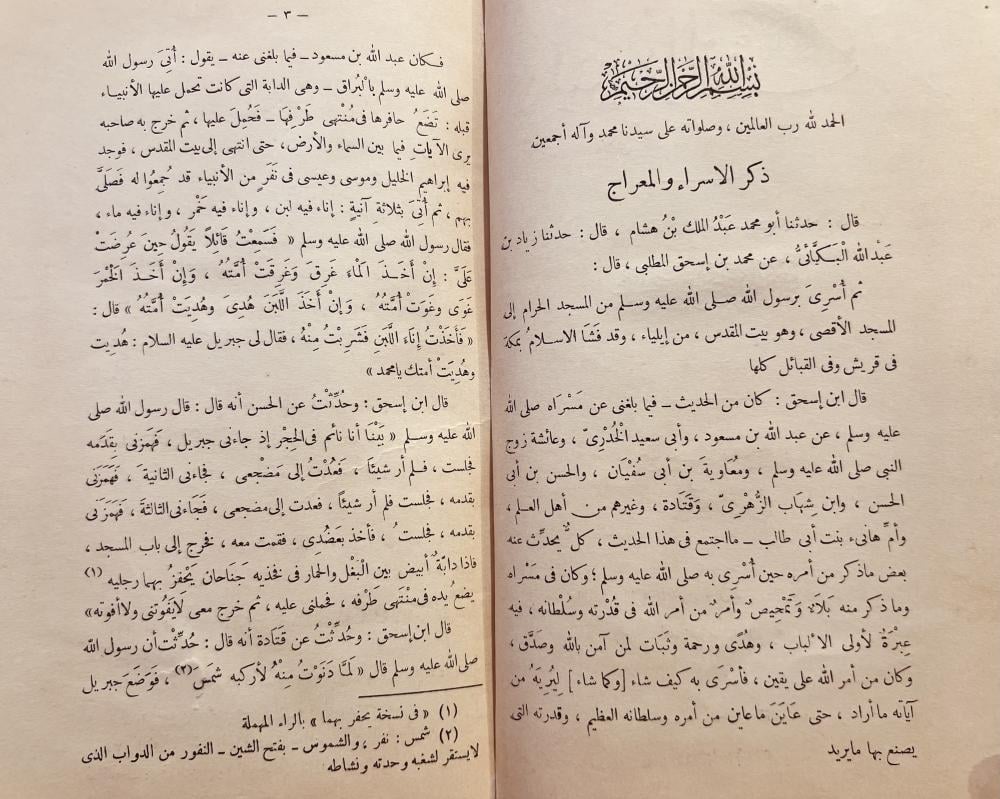 بسم الله الرحمن الرحيم
الحمد لله رب العالمين ، وصلواته على سيدنا محمد وآله أجمعين
ذكر الاسراء والمعراج
قال : حدثنا أبو محمد عَبْدُ الملك بْنُ هشام ، قال : حدثنا زياد بن
عَبْد الله الْبَكَّائىُّ ، عن محمد بن إسحق المطلبى ، قال :
ثم أُسْرِىَ بَرسول الله صلى الله عليه وسلم من المسجد الحرام إلى
المسجد الأقصى ، وهو بيت المقدس ، من إيلياء ، وقد فَشَا الاسلامُ بمكة
فى قريش وفى القبائل كلها
قال ابن إسحق : كان من الحديث – فيما بلغنى عن مَسْراه صلى الله
عليه وسلم ، عن عبد الله بن مسعود ، وأبى سعيد الْخُدْرِىّ ، وعائشة زوج
النبى صلى الله عليه وسلم ، ومُعَاوية بن أبى سُفْيَان ، والحسن بن أبى
الحسن ، وابن شِهَاب الزُّهْرِىّ ، وَقَتَادة ، وغيرهم من أهل العلم ،
وأمِّ هانىء بنت أبى طالب – ما اجتمع فى هذا الحديث ، كلٌّ يحدِّث عنه
بعض ماذكر من أمره حين أُسْرِى به صلى الله عليه وسلم ؛ وكان فى مَسْراه
وما ذكر منه بَلَاءٌ وَتَمْحِيصٌ وأمرٌ من أمر الله فى قُدْرته وسُلْطانه ، فيه
عِبْرَةٌ لأولى الألباب ، وهُدًى ورحمة وثَبَات لمن آمن بالله وصَدَّق ،
وكان من أمر الله على يقين ، فأسْرَى به كيف شاء [وكما شاء] لِيُرِيَهُ من
آياته ما أراد ، حتى عَايَنَ ماعاين من أمره وسلطانه العظيم ، وقدرته التى
يصنع بها مايريد
– ٣ –
فكان عبد الله بن مسعود – فيما بلغنى عنه – يقول : أُتِىَ رسول الله
صلى الله عليه وسلم بالْبُراق – وهى الدابة التى كانت تحمل عليها الأنبياء
قبله : تَضَعُ حافرها فى مُنْتهى طَرْفِهَا – فَحُمِلَ عليها ، ثم خرج به صاحبه
يرى الآياتِ فيما بين السماء والأرض ، حتى انتهى إلى بيت المقدس ، فوجد
فيه إبراهيم الخليل وموسى وعيسى فى نَفَر من الأنبياء قد جُمِعُوا له فَصَلَّى
بهم ، ثم أُتِىَ بثلاثة آنيةٍ : إناء فيه لبن ، وإناء فيه خَمْر ، وإناء فيه ماء ،
فقال رسول الله صلى الله عليه وسلم « فَسَمعْتُ قَائلاً يَقُولُ حِينَ عُرِضَتْ
عَلَىَّ : إنْ أخَذَ الْمَاءَ غَرِقَ وَغَرِقَتْ أُمَّتُهُ ، وَإنْ أَخَذَ الْخَمْرَ
غَوَى وغَوَتْ أُمَّتُهُ ، وَإنْ أَخَذَ اللَّبَنَ هُدِىَ وهُدِيَتْ أُمَّتُهُ » قال :
« فَأَخَذْتُ إنَاءَ اللَّبَنِ فَشَرِبْتُ مِنْهُ ، فقال لى جبريل عليه السلام : هُدِيت
وهُدِيَتْ أمتك يامحمد »
قال ابن إسحق : وحُدِّثْتُ عن الحسن أنه قال : قال رسول الله صلى
الله عليه وسلم « بَيْنَا أنا نائم فى الحِجْر إذ جاءنى جبريل ، فَهَمَزَنى بِقَدَمه
فجلست ، فلم أر شيئًا ، فَعُدْتُ إلى مَضْجعى ، فجاءنى الثانية ، فَهَمَزَنى
بقدمه ، فجلست فلم أر شيئاً ، فعدت إلى مضجعى ، فَجَاءنى الثالثةَ ، فَهَمَزَنى
بقدمه ، فجلستُ ، فأخذ بعَضُدِى ، فقمت معه ، فخرج إلى باب المسجد ،
فاذا دابَّةٌ أبيض بين الْبَغْل والحمار فى فخذيه جَنَاحان يَحْفِزُ بهما رجليه (١)
يضعُ يده فى مُنْتهى طَرْفه ، فحملنى عليه ، ثم خرج معى لايَفُوتُنى ولا أفوته »
قال ابن إسحق : وحُدِّثْتُ عن قَتَادة أنه قال : حُدِّثْت أن رسول الله
صلى الله عليه وسلم قال « لَمَّا دَنَوْتُ مِنْهُ لأركبه شَمَسَ (٢) ، فَوَضَعَ جبريل
(١) « فى نسخة يحفر بهما » بالراء المهملة
(٢) شمس : نفر ، والشموس – بفتح الشين – النفور من الدواب الذى
لايستقر لشغبه وحدته ونشاطه